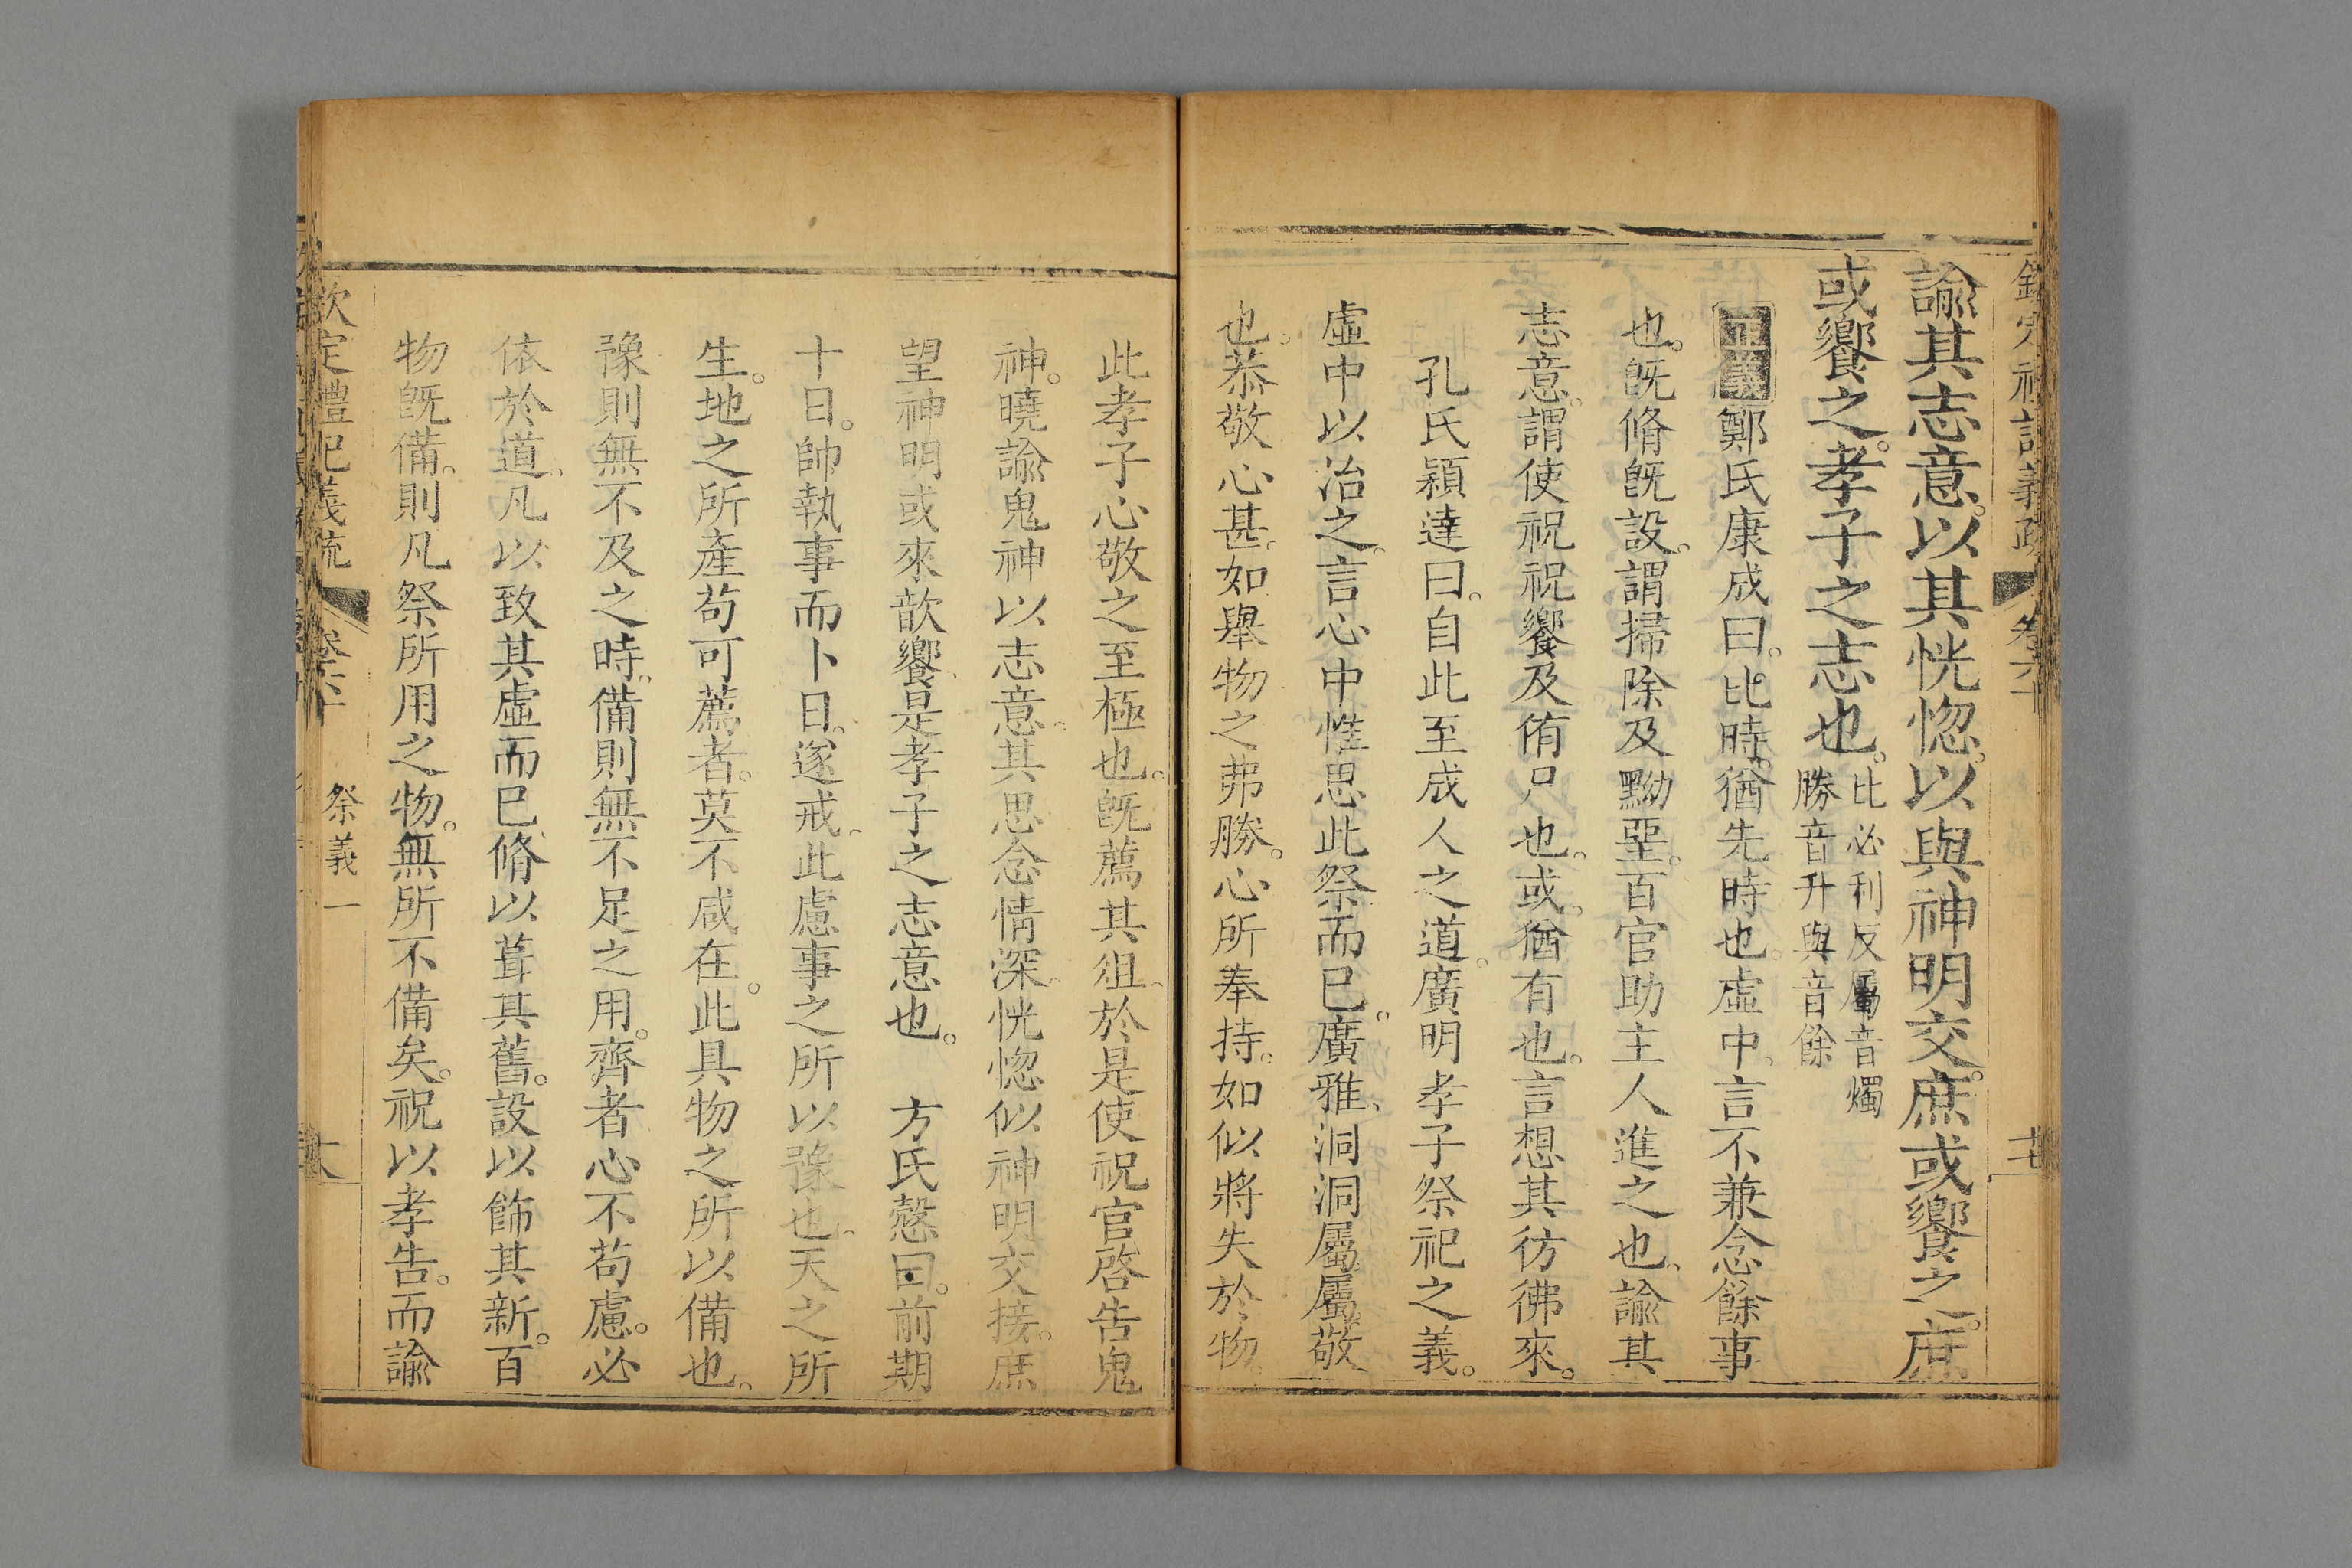 諭其志意。以其恍惚。以與神明交。庶或饗之。庶
或饗之。孝子之志也。比必利反屬音燭
勝音升與音餘
正義鄭氏康成曰。比時。猶先時也。虛中。言不兼念餘事
也。旣脩旣設。謂掃除及黝堊。百官助主人進之也。諭其
志意。謂使祝祝饗及侑尸也。或。猶有也。言想其彷彿來。
孔氏穎達曰。自此至成人之道。廣明孝子祭祀之義。
虛中以治之。言心中惟思此祭而已。廣雅。洞洞屬屬。敬
也。恭敬心甚。如舉物之弗勝。心所奉持。如似將失於物。
此孝子心敬之至極也。旣薦其俎。於是使祝官啓告鬼
神。曉諭鬼神以志意。其思念情深。恍惚似神明交接。庶
望神明或來歆饗。是孝子之志意也。 方氏慤曰。前期
十日。帥執事而卜日。遂戒。此慮事之所以豫也。天之所
生。地之所產。苟可薦者。莫不咸在。此具物之所以備也。
豫則無不及之時。備則無不足之用。齊者心不苟慮。必
依於道。凡以致其虛而已。脩以葺其舊。設以飾其新。百
物旣備。則凡祭所用之物。無所不備矣。祝以孝告。而諭
欽定禮記義疏 卷六十 祭義一